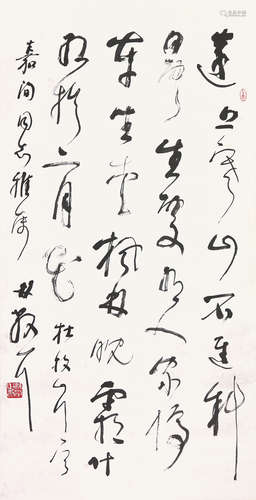 遠上寒山石逕斜
白雲生處有人家停
車坐愛楓林晚霜葉
紅於二月花 杜牧山行
嘉 同志雅属 林散耳